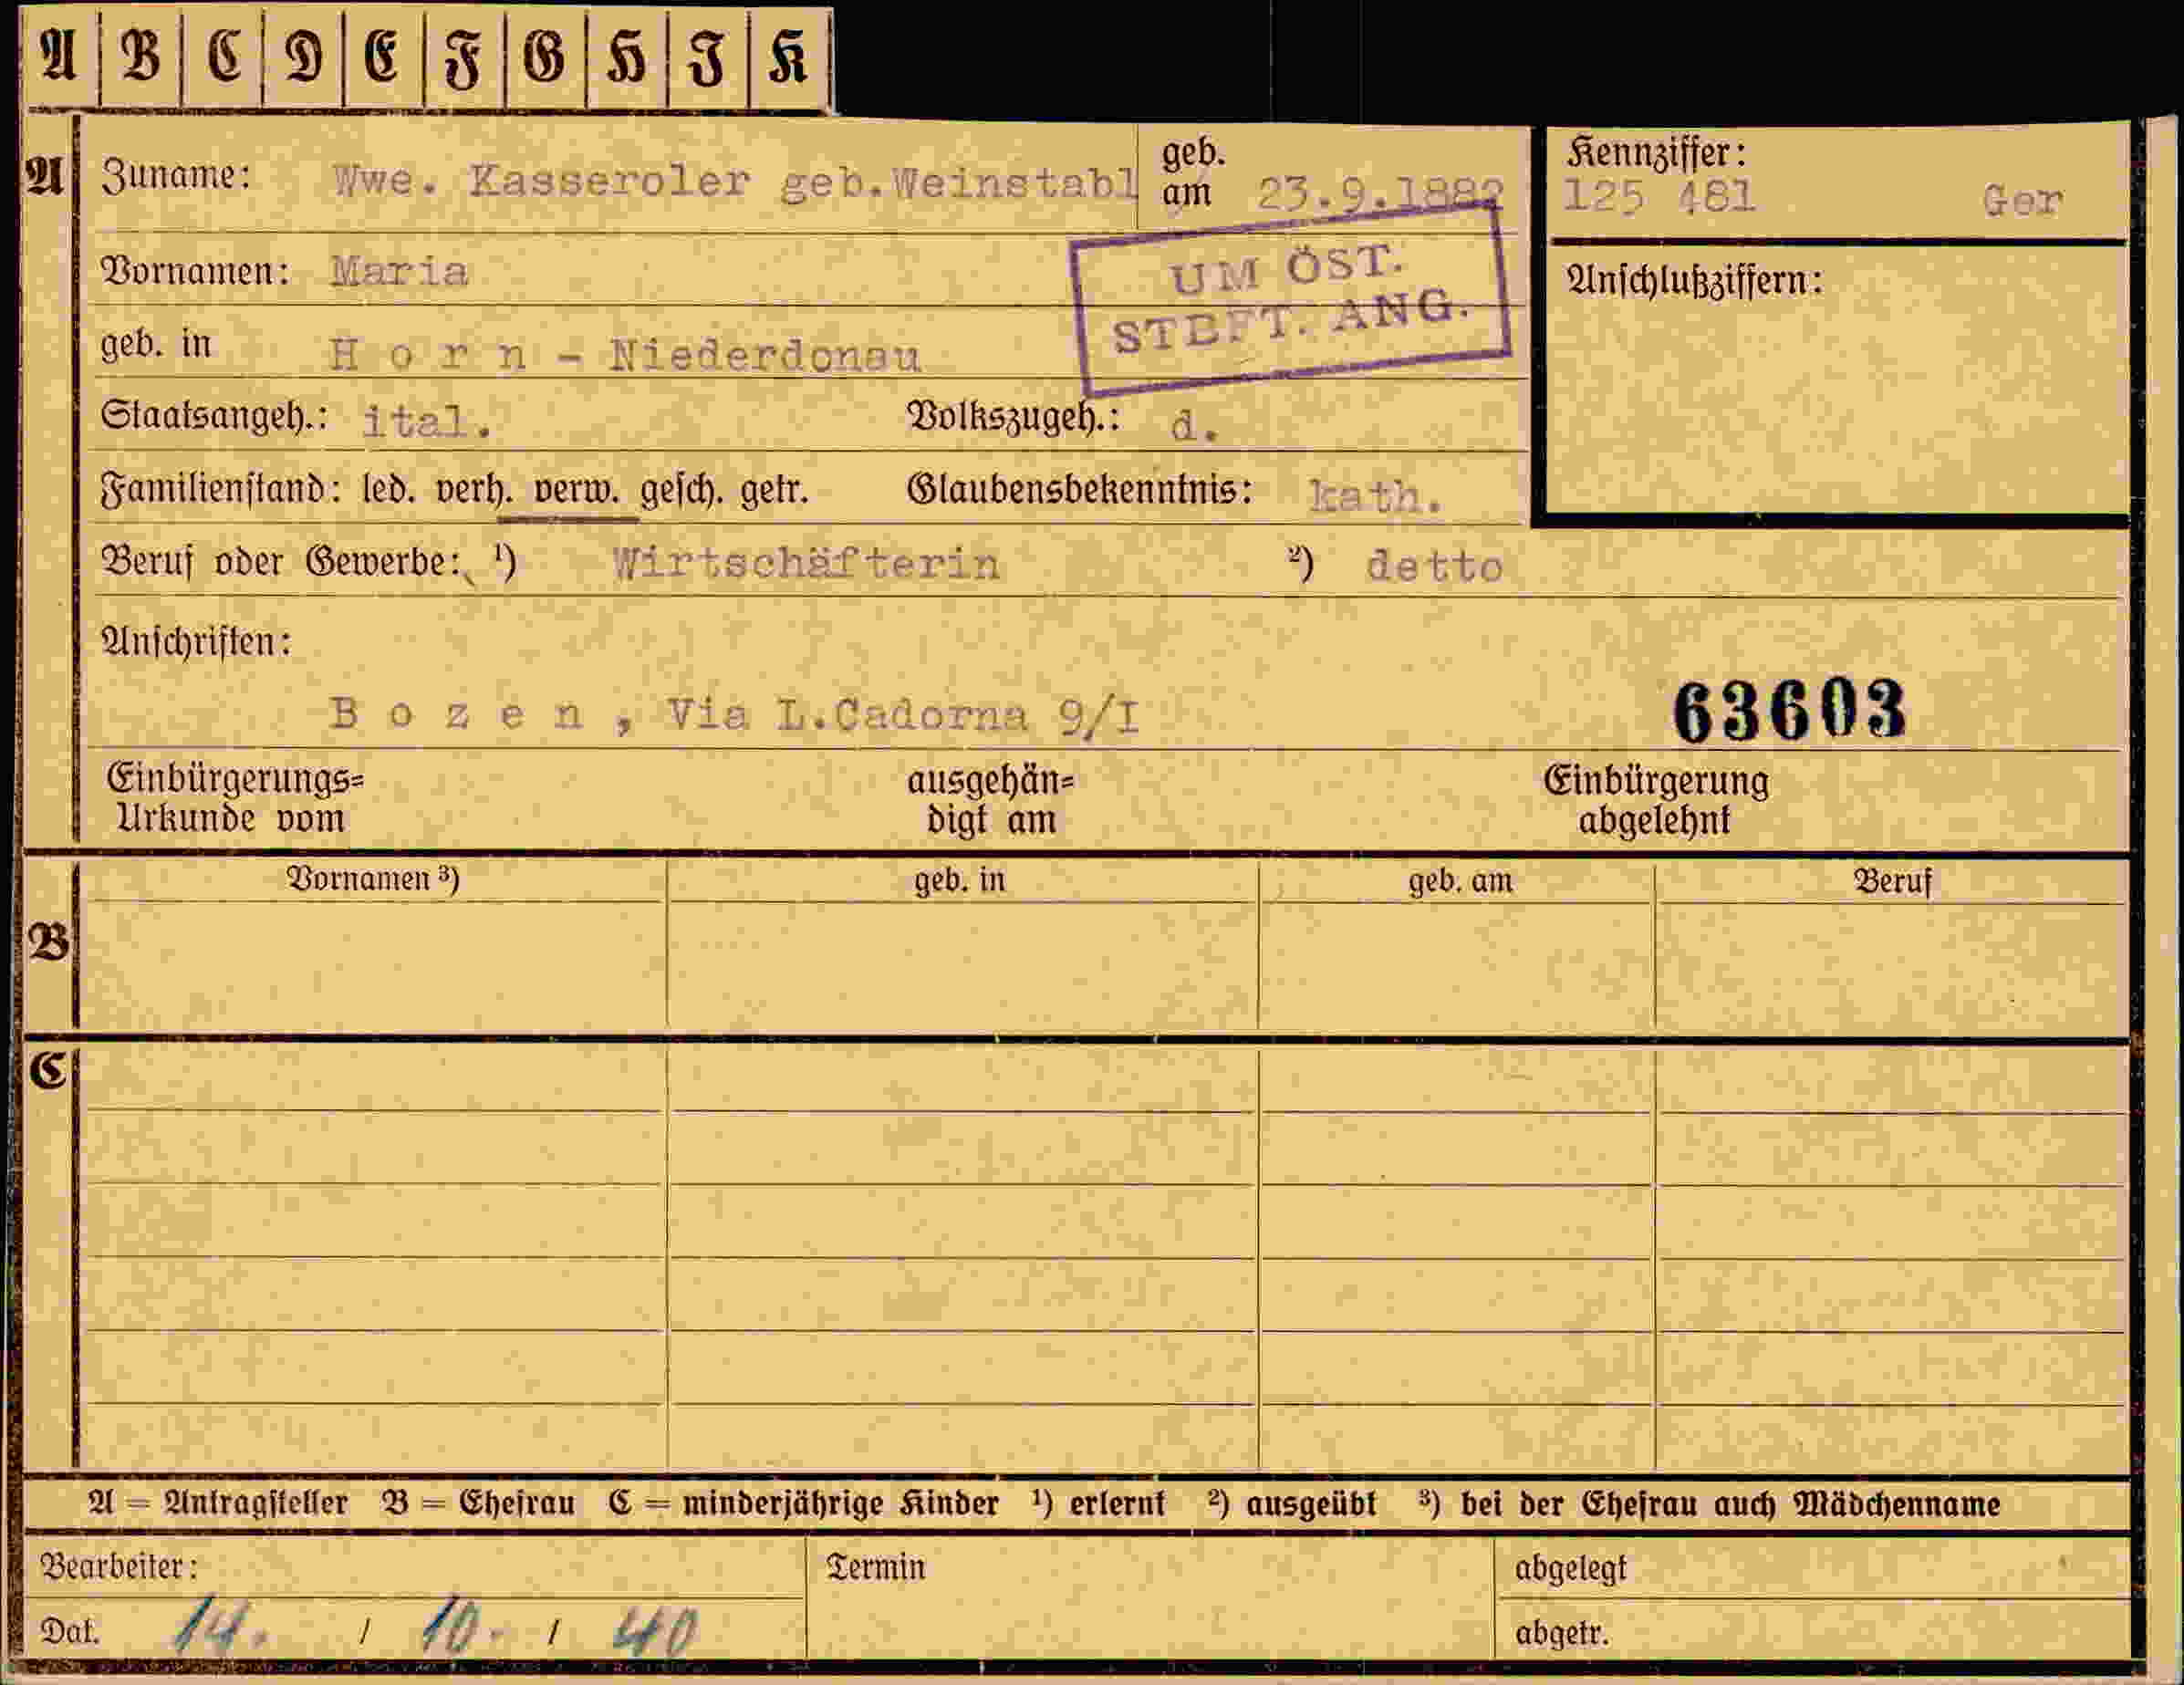 A B C D E F G H I K
A Zuname: Wwe. Kasseroler geb.Weinstabl geb. am 23.9.1882
Kennziffer:
125 481 Ger
Vornamen: Maria
UM ÖST.
STBFT. ANG.
Anschlußziffern:
geb. in H o r n - Niederdonau
Staatsangeh.: ital. Volkszugeh.: d.
Familienstand: led. verh. verw. gesch. getr. Glaubensbekenntnis: kath.
Beruf oder Gewerbe: ¹) Wirtschäfterin ²) detto
Anschriften:
B o z e n , Via L.Cadorna 9/I 63603
Einbürgerungs= ausgehän= Einbürgerung
Urkunde vom digt am abgelehnt
B Vornamen ³) geb. in geb. am Beruf
C
A = Antragsteller B = Ehefrau C = minderjährige Kinder ¹) erlernt ²) ausgeübt ³) bei der Ehefrau auch Mädchenname
Bearbeiter: Termin abgelegt
Dat. 14. / 10. / 40 abgetr.